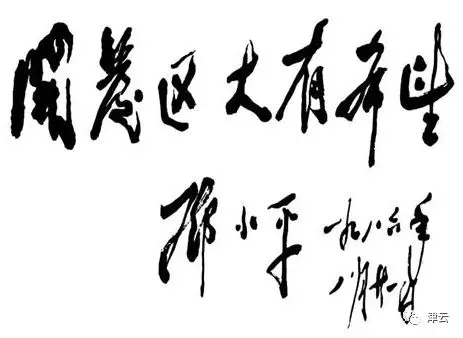 開发区大有希望
邓小平 一九八六年
八月廿一日
津云